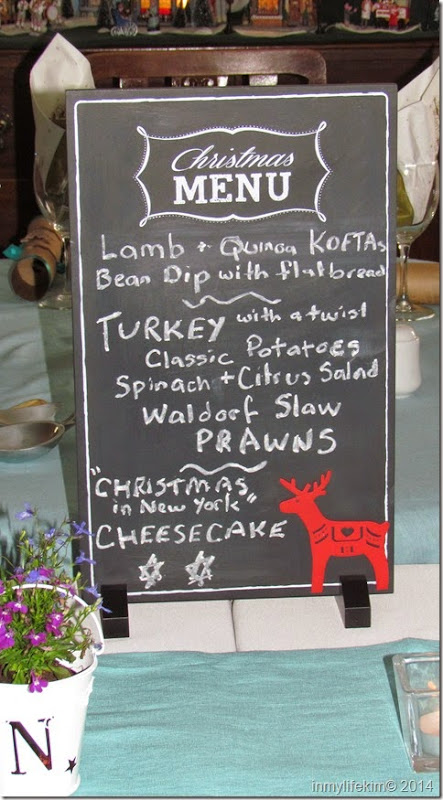 Christmas
MENU
Lamb + Quinoa KOFTAs
Bean Dip with flatbread
TURKEY with a twist
Classic Potatoes
Spinach + Citrus Salad
Waldorf Slaw
PRAWNS
"CHRISTMAS
in New York"
CHEESECAKE
N.
inmylifekim© 2014